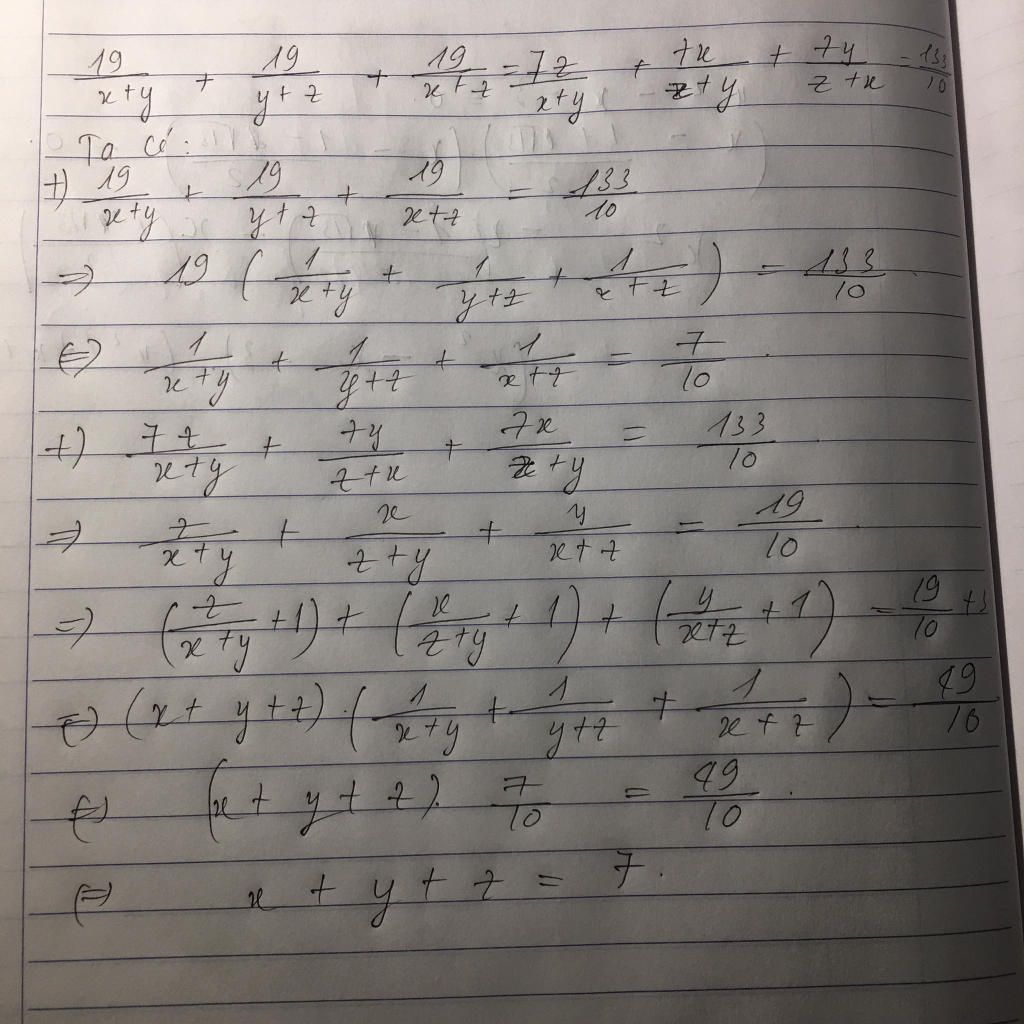 19/(x+y) + 19/(y+z) + 19/(x+z) = 7z/(x+y) + 7x/(z+y) + 7y/(z+x) = 133/10
Ta có:
+) 19/(x+y) + 19/(y+z) + 19/(x+z) = 133/10
=> 19 (1/(x+y) + 1/(y+z) + 1/(x+z)) = 133/10.
<=> 1/(x+y) + 1/(y+z) + 1/(x+z) = 7/10.
+) 7z/(x+y) + 7y/(z+x) + 7x/(z+y) = 133/10.
=> z/(x+y) + x/(z+y) + y/(x+z) = 19/10.
=> (z/(x+y) + 1) + (x/(z+y) + 1) + (y/(x+z) + 1) = 19/10 + 3
=> (x + y + z) . (1/(x+y) + 1/(y+z) + 1/(x+z)) = 49/10
<=> (x + y + z). 7/10 = 49/10.
<=> x + y + z = 7.